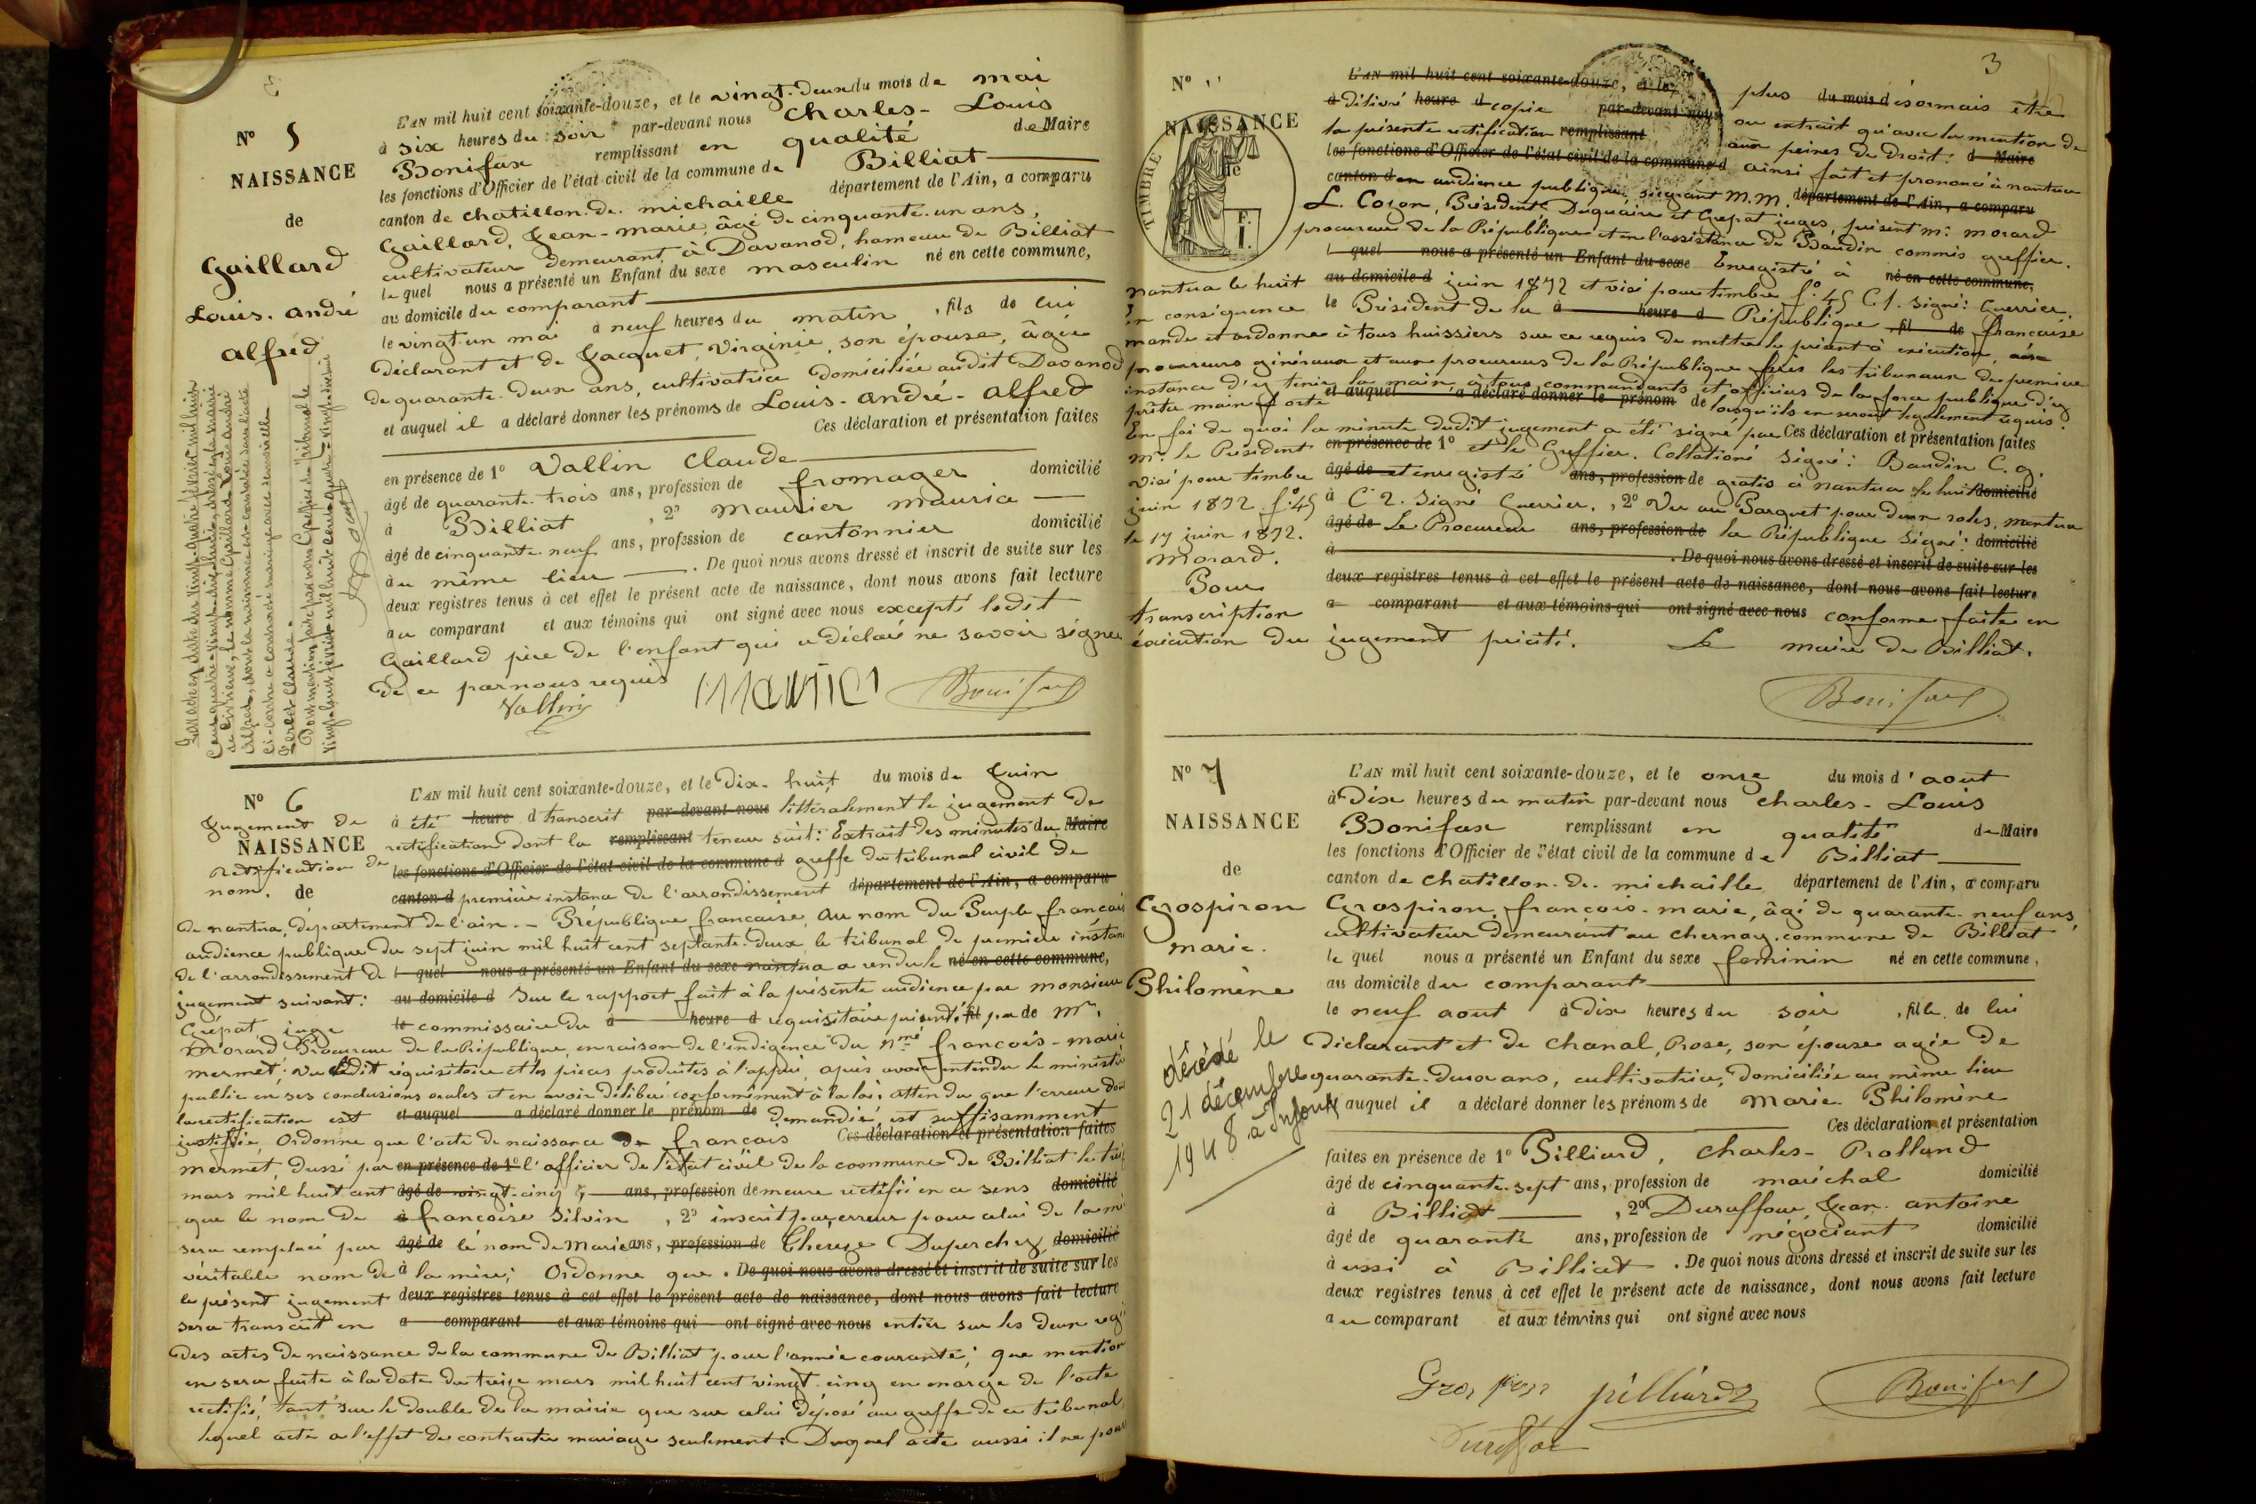 N° 5
NAISSANCE
de
Gaillard
Louis. André
Alfred
L'AN mil huit cent soixante-douze, et le vingt-deux du mois de mai
à six heures du soir par-devant nous Charles-Louis
Bonifax remplissant en qualité de Maire
les fonctions d'Officier de l'état civil de la commune de Billiat
canton de chatillon. de. michaille département de l'Ain, a comparu
Gaillard, Jean-Marie, âgé de cinquante-un ans,
cultivateur demeurant à Davanod, hameau de Billiat
lequel nous a présenté un Enfant du sexe masculin né en cette commune,
au domicile du comparant
le vingt un mai à neuf heures du matin, fils de lui
déclarant et de Jacquet, Virginie, son épouse, âgée
de quarante-deux ans, cultivatrice domiciliée audit Davanod
et auquel il a déclaré donner les prénoms de Louis-André-Alfred
Ces déclaration et présentation faites
en présence de 1° Vallin Claude
âgé de quarante-trois ans, profession de fromager domicilié
à Billiat, 2° Maurier Maurice
âgé de cinquante neuf ans, profession de cantonnier domicilié
au même lieu. De quoi nous avons dressé et inscrit de suite sur les
deux registres tenus à cet effet le présent acte de naissance, dont nous avons fait lecture
au comparant et aux témoins qui ont signé avec nous excepté ledit
Gaillard père de l'enfant qui a déclaré ne savoir signer
de ce par nous requis
Vallin Maurier Bonifax
N° 6
Jugement de
NAISSANCE
rectification de
nom. de
L'AN mil huit cent soixante-douze, et le Dix-huit du mois de Juin
à été heure d transcrit par-devant nous littéralement le jugement de
rectification dont la remplissant teneur suit: Extrait des minutes du Maire
les fonctions d'Officier de l'état civil de la commune d greffe du tribunal civil de
canton d première instance de l'arrondissement département de l'Ain, a comparu
de nantua, département de l'ain. - République française, au nom du Peuple français
audience publique du sept juin mil huit cent septante-deux, le tribunal de première instance
de l'arrondissement de l quel nous a présenté un Enfant du sexe nantua a rendu le né en cette commune,
jugement suivant: au domicile d Sur le rapport fait à la présente audience par monsieur
Crépat juge le commissaire du à heure d réquisitoire présenté fil par de Mr.
Morard Procureur de la République, en raison de l'indigence du nmé françois-marie
mermet; vu ledit réquisitoire et les pièces produites à l'appui, après avoir entendu le ministère
public en ses conclusions orales et en avoir délibéré conformément à la loi; attendu que l'erreur dont
la rectification est et auquel a déclaré donner le prénom de demandée, est suffisamment
justifiée, Ordonne que l'acte de naissance de françois Ces déclaration et présentation faites
mermet, dressé par en présence de 1° l'officier de l'état civil de la commune de Billiat le treize
mars mil huit cent âgé de vingt-cinq ans, profession demeure rectifié en ce sens domicilié
que le nom de à françoise Silvin, 2° inscrit par erreur pour celui de la mère
sera remplacé par âgé de le nom de Marie ans, profession de Thérèze Duperchy, domicilié
véritable nom de à la mère; Ordonne que. De quoi nous avons dressé et inscrit de suite sur les
le présent jugement deux registres tenus à cet effet le présent acte de naissance, dont nous avons fait lecture
sera transcrit en a comparant et aux témoins qui ont signé avec nous entier sur les deux
des actes de naissance de la commune de Billiat pour l'année courante; que mention
en sera faite à la date du treize mars mil huit cent vingt-cinq en marge de l'acte
rectifié, tant sur le double de la mairie que sur celui déposé au greffe de ce tribunal,
lequel acte a l'effet de contracter mariage seulement: Duquel acte aussi il ne pourra
3
N°
NAISSANCE
de
TIMBRE
L'AN mil huit cent soixante-douze, et le plus du mois d désormais être
à délivré heure d copie par-devant nous ou extrait qu'avec la mention de
la présente rectification remplissant aux peines de droit: d Maire
les fonctions d'Officier de l'état civil de la commune d ainsi fait et prononcé à nantua
canton d en audience publique, siégeant M.M. département de l'Ain, a comparu
L. Cozon, Président, Duquaire et Crepat juges, présent Mr. Morard
procureur de la République et en l'assistance de Baudin commis greffier.
l quel nous a présenté un Enfant du sexe Enregistré à né en cette commune,
nantua le huit au domicile d juin 1872 et visé pour timbre f° 45 C. 1. Signé: Guerrier.
En conséquence le Président de la à heure d République, fil de française
mande et ordonne à tous huissiers sur ce requis de mettre le présent à exécution, aux
procureurs généraux et aux procureurs de la République près les tribunaux de première
instance d'y tenir la main, à tous commandants et officiers de la force publique d'y
prêter main forte et auquel a déclaré donner le prénom de lorsqu'ils en seront légalement requis.
En foi de quoi la minute dudit jugement a été signé par Ces déclaration et présentation faites
Mr. le Président en présence de 1° et le Greffier. Collationé Signé: Baudin C. g.
visé pour timbre âgé de et enregistré ans, profession de gratis à nantua le huit domicilié
juin 1872 f° 45 à C. 2. Signé Guerrier., 2° Vu au Parquet pour deux roles, nantua
le 17 juin 1872. âgé de Le Procureur ans, profession de la République Signé: domicilié
Morard. à. De quoi nous avons dressé et inscrit de suite sur les
Pour deux registres tenus à cet effet le présent acte de naissance, dont nous avons fait lecture
transcription a comparant et aux témoins qui ont signé avec nous conforme faite en
exécution du jugement précité. Le maire de Billiat.
Bonifax
N° 7
NAISSANCE
de
Grospiron
marie.
Philomène
décédé le
21 décembre
1948 à Injoux
L'AN mil huit cent soixante-douze, et le onze du mois d'aout
à Dix heures du matin par-devant nous Charles-Louis
Bonifax remplissant en qualité de Maire
les fonctions d'Officier de l'état civil de la commune de Billiat
canton de chatillon. de. michaille département de l'Ain, a comparu
Grospiron, françois-marie, âgé de quarante-neuf ans,
cultivateur demeurant au Chernay, commune de Billiat
le quel nous a présenté un Enfant du sexe feminin né en cette commune,
au domicile du comparant
le neuf aout à dix heures du soir, fille de lui
déclarant et de Chanal, Rose, son épouse agée de
quarante-deux ans, cultivatrice, domiciliée au même lieu
auquel il a déclaré donner les prénoms de Marie Philomène
Ces déclaration et présentation
faites en présence de 1° Pilliard, Charles-Rolland
âgé de cinquante-sept ans, profession de maréchal domicilié
à Billiat, 2° Duraffour, Jean-antoine
âgé de quarante ans, profession de négociant domicilié
aussi à Billiat. De quoi nous avons dressé et inscrit de suite sur les
deux registres tenus à cet effet le présent acte de naissance, dont nous avons fait lecture
au comparant et aux témoins qui ont signé avec nous
Grospiron pilliard Bonifax